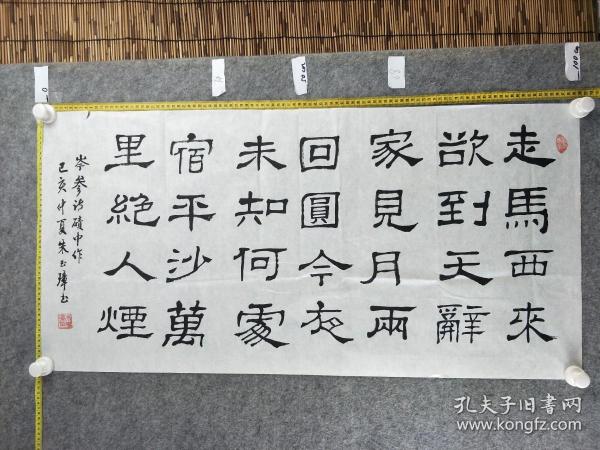 走馬西來
欲到天辭
家見月兩
回圓今夜
未知何處
宿平沙萬
里絶人煙
岑參诗磧中作
己亥仲夏朱玉璋书
0
50cm
100cm
孔夫子旧書网
www.kongfz.com